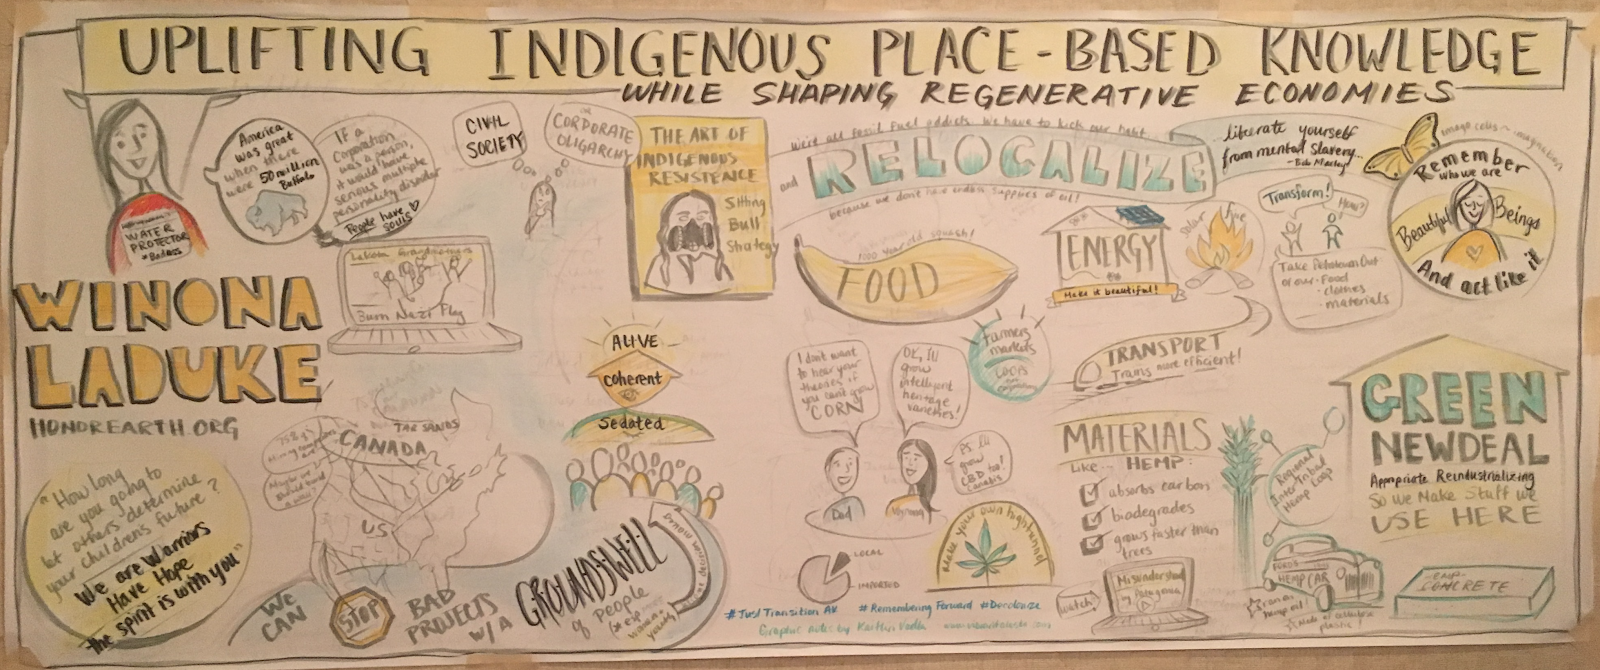 UPLIFTING INDIGENOUS PLACE-BASED KNOWLEDGE
WHILE SHAPING REGENERATIVE ECONOMIES
WATER
PROTECTOR
#Badass
America
was great
when there
were 50 million
Buffalo
If a
Corporation
was a person,
it would have
serious multiple
personality disorder
People have
souls
CIVIL
SOCIETY
OR
CORPORATE
OLIGARCHY
THE ART OF
INDIGENOUS
RESISTENCE
Sitting
Bull
Strategy
WINONA
LADUKE
HONOREARTH.ORG
Lakota Grandmothers
Burn Nazi Flag
"How long
are you going to
let others determine
your childrens future?
We are Warriors
Have Hope
the spirit is with you"
TAR SANDS
CANADA
US
ALIVE
Coherent
Sedated
WE
CAN
STOP
BAD
PROJECTS
W/A
GROUNDSWELL
of people
We're all fossil fuel addicts. We have to kick our habit
and
RELOCALIZE
because we don't have endless supplies of oil!
liberate yourself
from mental slavery...
-Bob Marley
imago cells ~ imagination
Remember
who we are
Beautiful Beings
And act like it
1000 year old squash!
FOOD
ENERGY
Make it beautiful!
solar fire
Transform!
How?
Take Petroleum Out
of our: Food
· clothes
· materials
Farmers
markets
COOPS
I dont want
to hear your
theories if
you cant grow
CORN
OK, Ill
grow
intelligent
heritage
varieties!
PS. Ill
grow
CBD too!
Cannabis
Dad
Winona
LOCAL
IMPORTED
Make your own high grand
TRANSPORT
Trains more efficient!
MATERIALS
Like... HEMP:
absorbs carbon
biodegrades
grows faster than
trees
Watch!
Misunderstood
by Patagonia
Regional
Inter tribal
Hemp Coops
GREEN
NEW DEAL
Appropriate Reindustrializing
So We Make Stuff we
USE HERE
FORD'S 1941
HEMP CAR
ran on
hemp oil!
Made of cellulose
plastic!
HEMP-
CONCRETE
#Just Transition AK #Remembering Forward
Graphic notes by